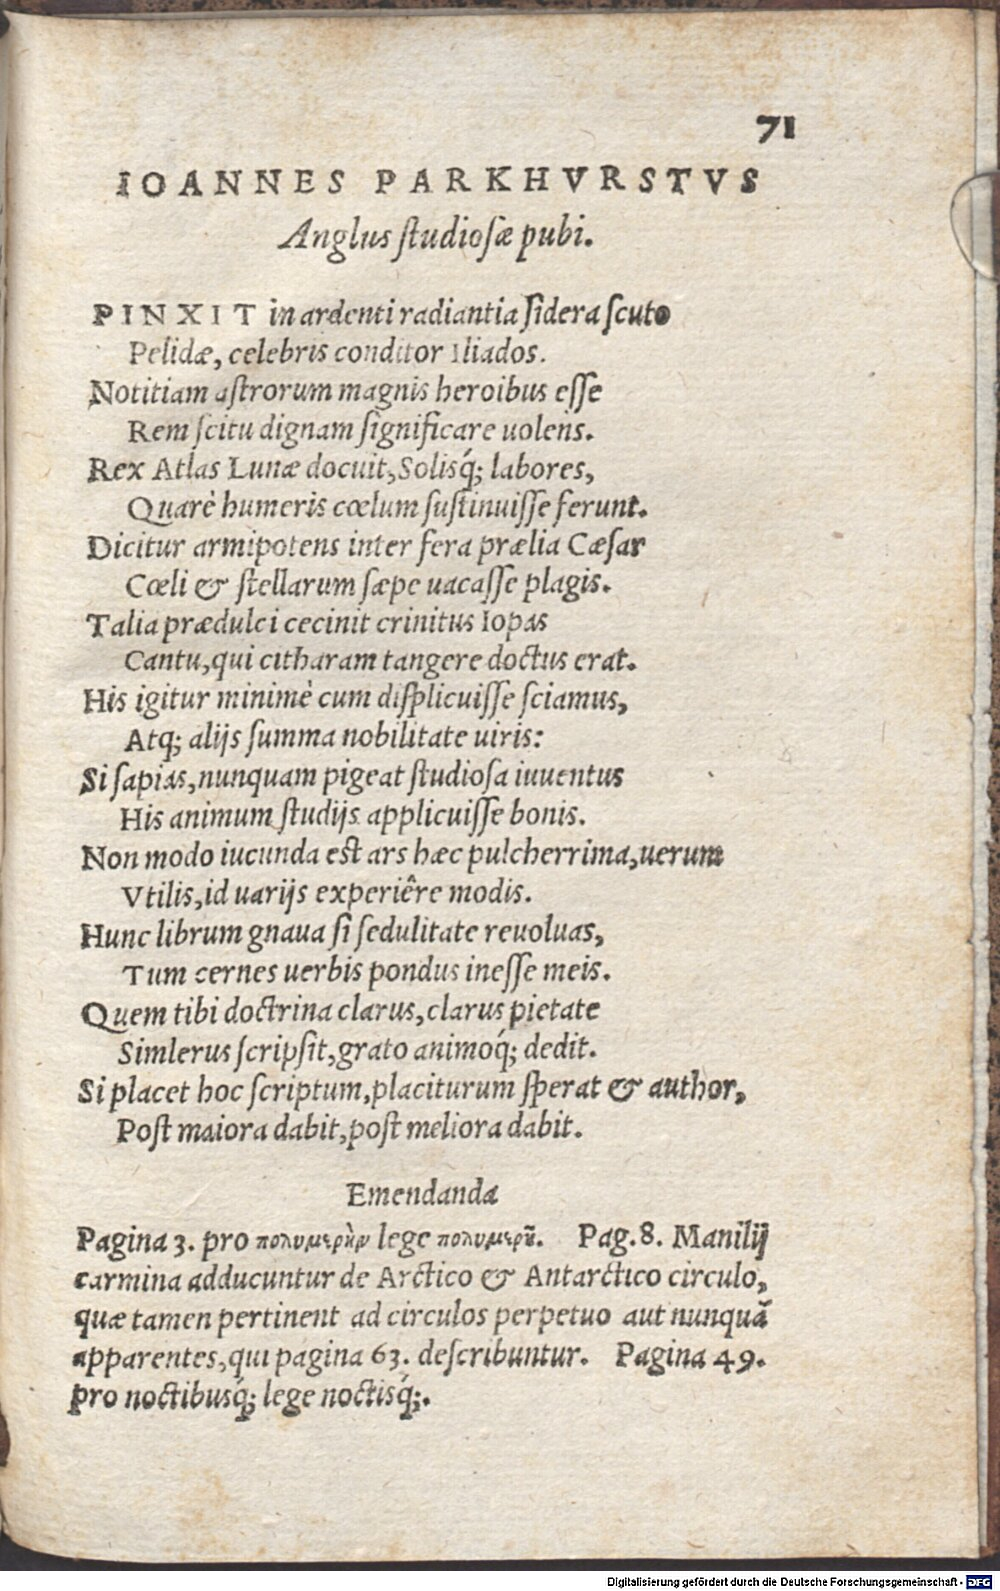 71
IOANNES PARKHVRSTVS
Anglus ſtudioſæ pubi.
PINXIT in ardenti radiantia ſidera ſcuto
Pelidæ, celebris conditor Iliados.
Notitiam aſtrorum magnis heroibus eſſe
Rem ſcitu dignam ſignificare uolens.
Rex Atlas Lunæ docuit, Solisq́; labores,
Quarè humeris cœlum ſuſtinuiſſe ferunt.
Dicitur armipotens inter fera prælia Cæſar
Cœli & ſtellarum ſæpe uacaſſe plagis.
Talia prædulci cecinit crinitus Iopas
Cantu, qui citharam tangere doctus erat.
His igitur minimè cum diſplicuiſſe ſciamus,
Atq; alijs ſumma nobilitate uiris:
Si ſapias, nunquam pigeat ſtudioſa iuuentus
His animum ſtudijs applicuiſſe bonis.
Non modo iucunda est ars hæc pulcherrima, uerum
Vtilis, id uarijs experiêre modis.
Hunc librum gnaua ſi ſedulitate reuoluas,
Tum cernes uerbis pondus ineſſe meis.
Quem tibi doctrina clarus, clarus pietate
Simlerus ſcripſit, grato animoq́; dedit.
Si placet hoc ſcriptum, placiturum ſperat & author,
Poſt maiora dabit, poſt meliora dabit.
Emendanda
Pagina 3. pro πολυμερὴν lege πολυμερῆ. Pag. 8. Manilij
carmina adducuntur de Arctico & Antarctico circulo,
quæ tamen pertinent ad circulos perpetuo aut nunquā
apparentes, qui pagina 63. deſcribuntur. Pagina 49.
pro noctibusq́; lege noctisq́;.
Digitalisierung gefördert durch die Deutsche Forschungsgemeinschaft - DFG